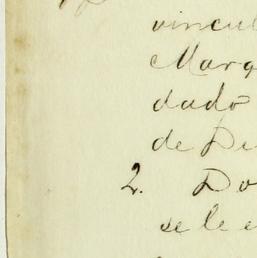 vincul
Marq
dado
de Di
2. Do
se le e